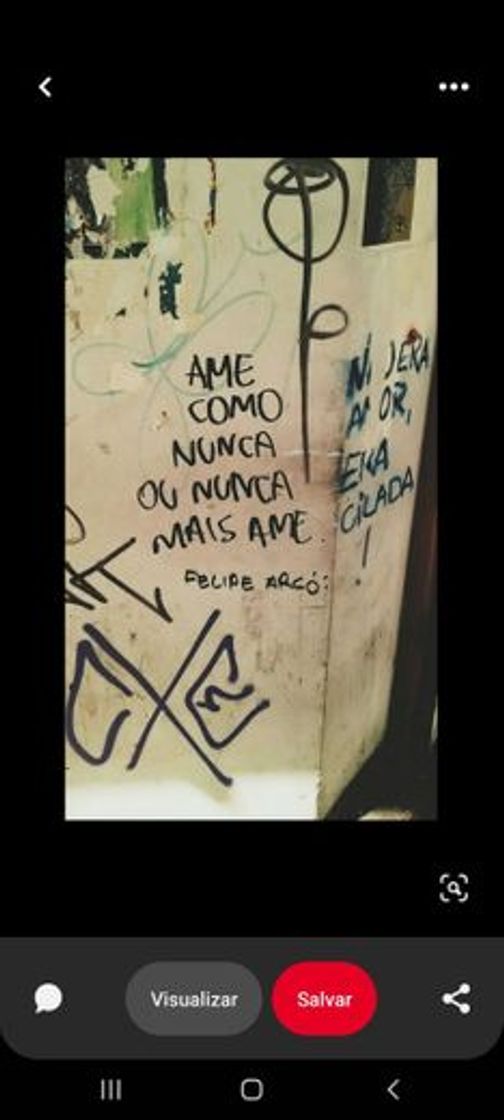 AME
COMO
NUNCA
OU NUNCA
MAIS AME.
FELIPE ARCÓ:
AMOR,
ERA
CILADA
!
Visualizar
Salvar